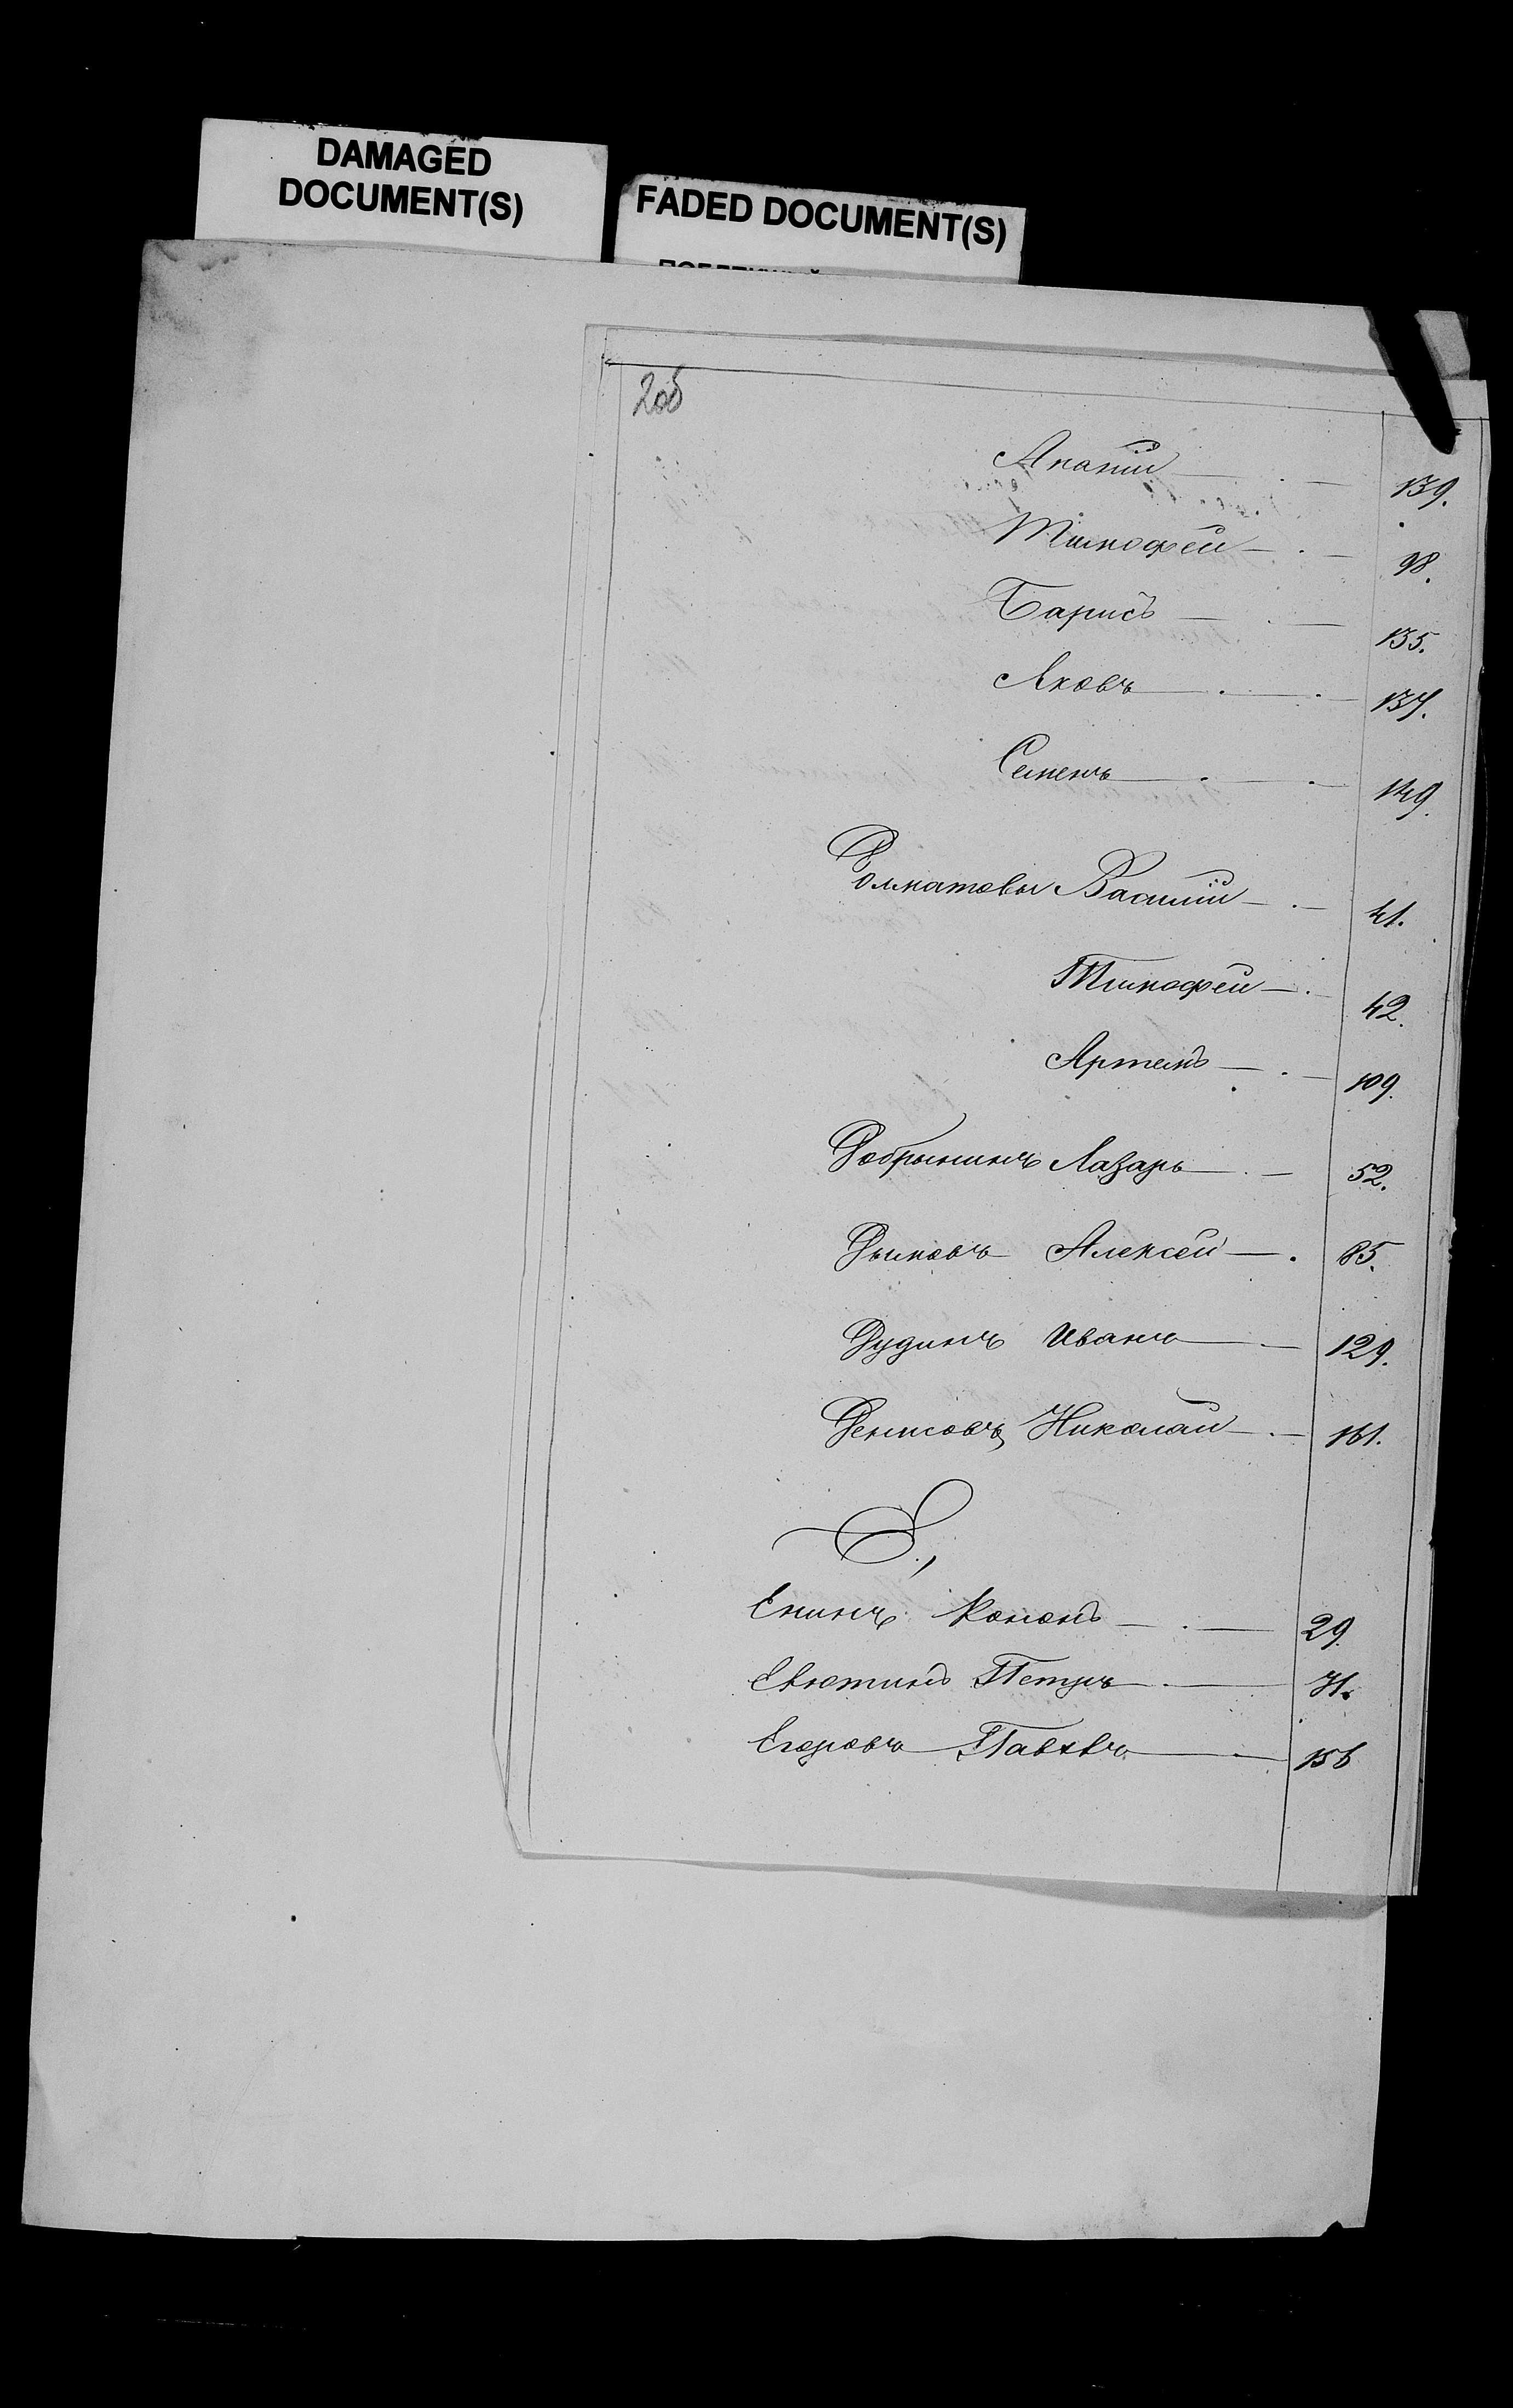 DAMAGED
DOCUMENT(S)
FADED DOCUMENT(S)
2об
Ананiй 139.
Тимофей 98.
Барисъ 135.
Яковъ 137.
Семенъ 149.
Долматовы Василiй 41.
Тимофей 42.
Артемъ 109.
Добрынинъ Лазарь 52.
Дымовъ Алексей 85.
Дудинъ Иванъ 129.
Денисовъ Николай 161.
Е.,
Енинъ Кононъ 29.
Евтютинъ Петръ 71.
Егоровъ Павелъ 156